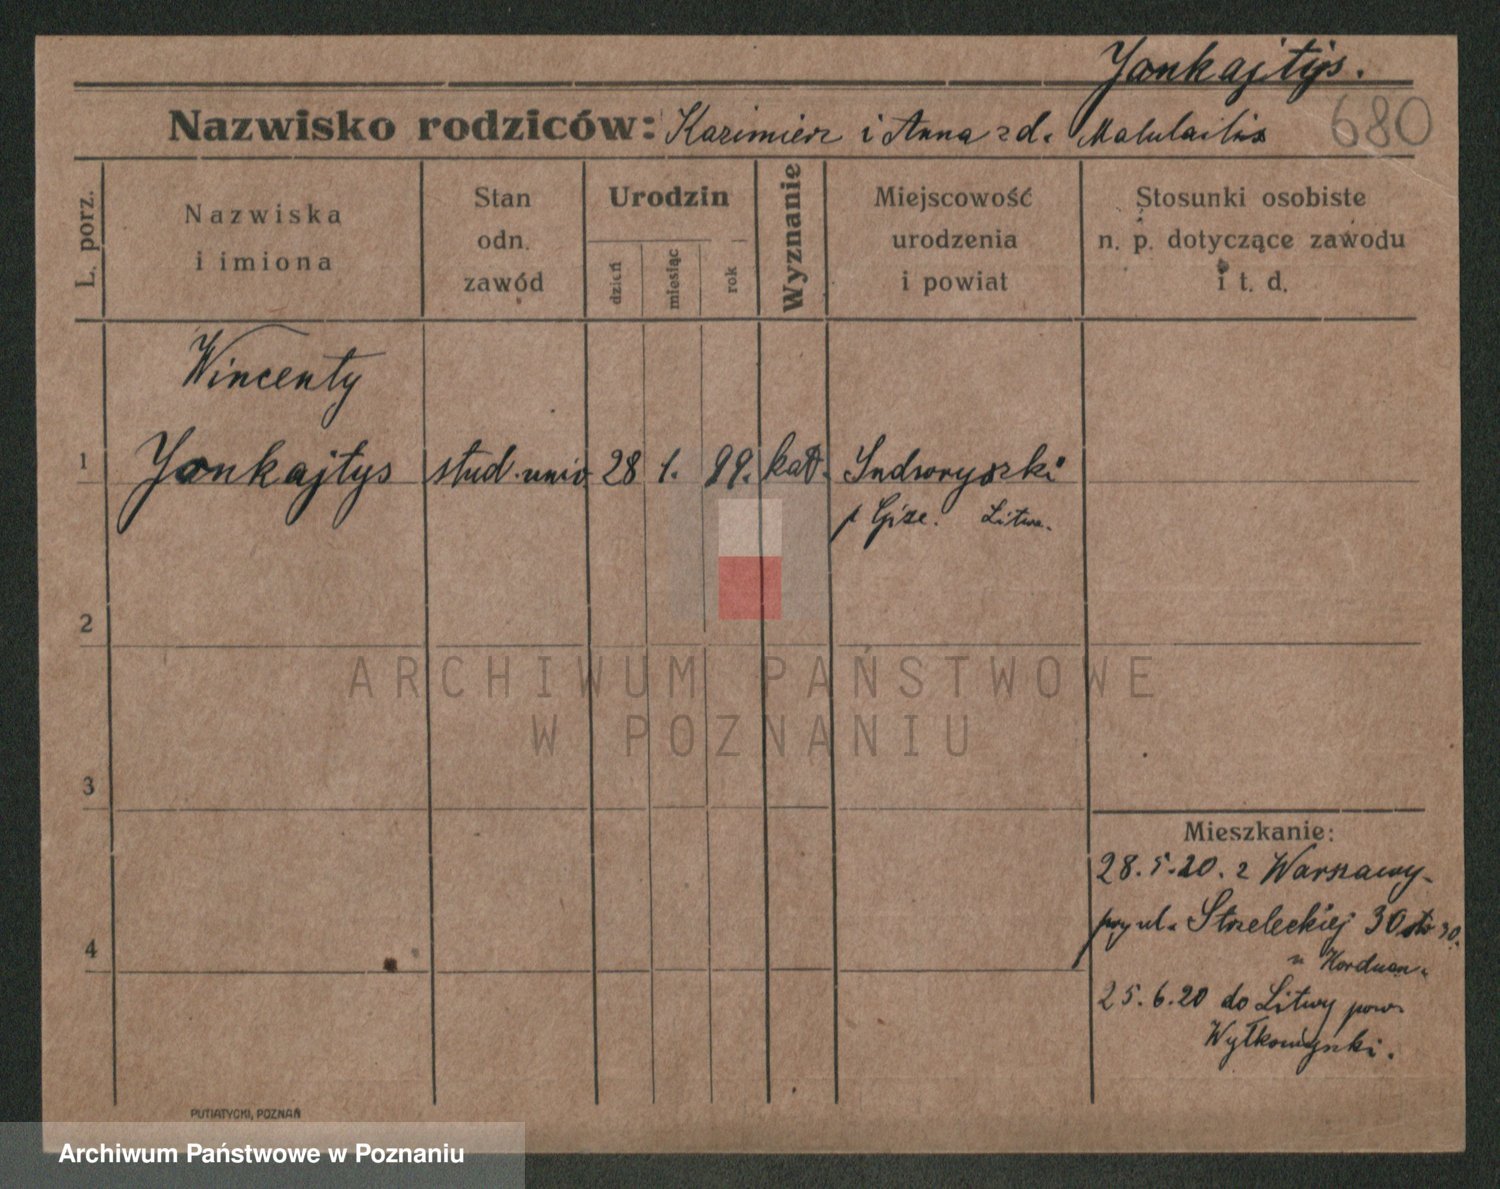 Jonkajtys.
680
Nazwisko rodziców: Kazimierz i Anna z d. Matulaitis
L. porz.
Nazwiska
i imiona
Stan
odn.
zawód
Urodzin
dzień
miesiąc
rok
Wyznanie
Miejscowość
urodzenia
i powiat
Stosunki osobiste
n. p. dotyczące zawodu
i t. d.
Wincenty
1 Jonkajtys stud. univ. 28 1. 99. kat.
Litwa.
2
3
4
Mieszkanie:
28.5.20. z Warszawy
przy ul. Strzeleckiej 30
u Korduan.
25.6.20 do Litwy pow.
Wyłkowyszki.
PUTIATYCKI, POZNAŃ
ARCHIWUM PAŃSTWOWE
W POZNANIU
Archiwum Państwowe w Poznaniu